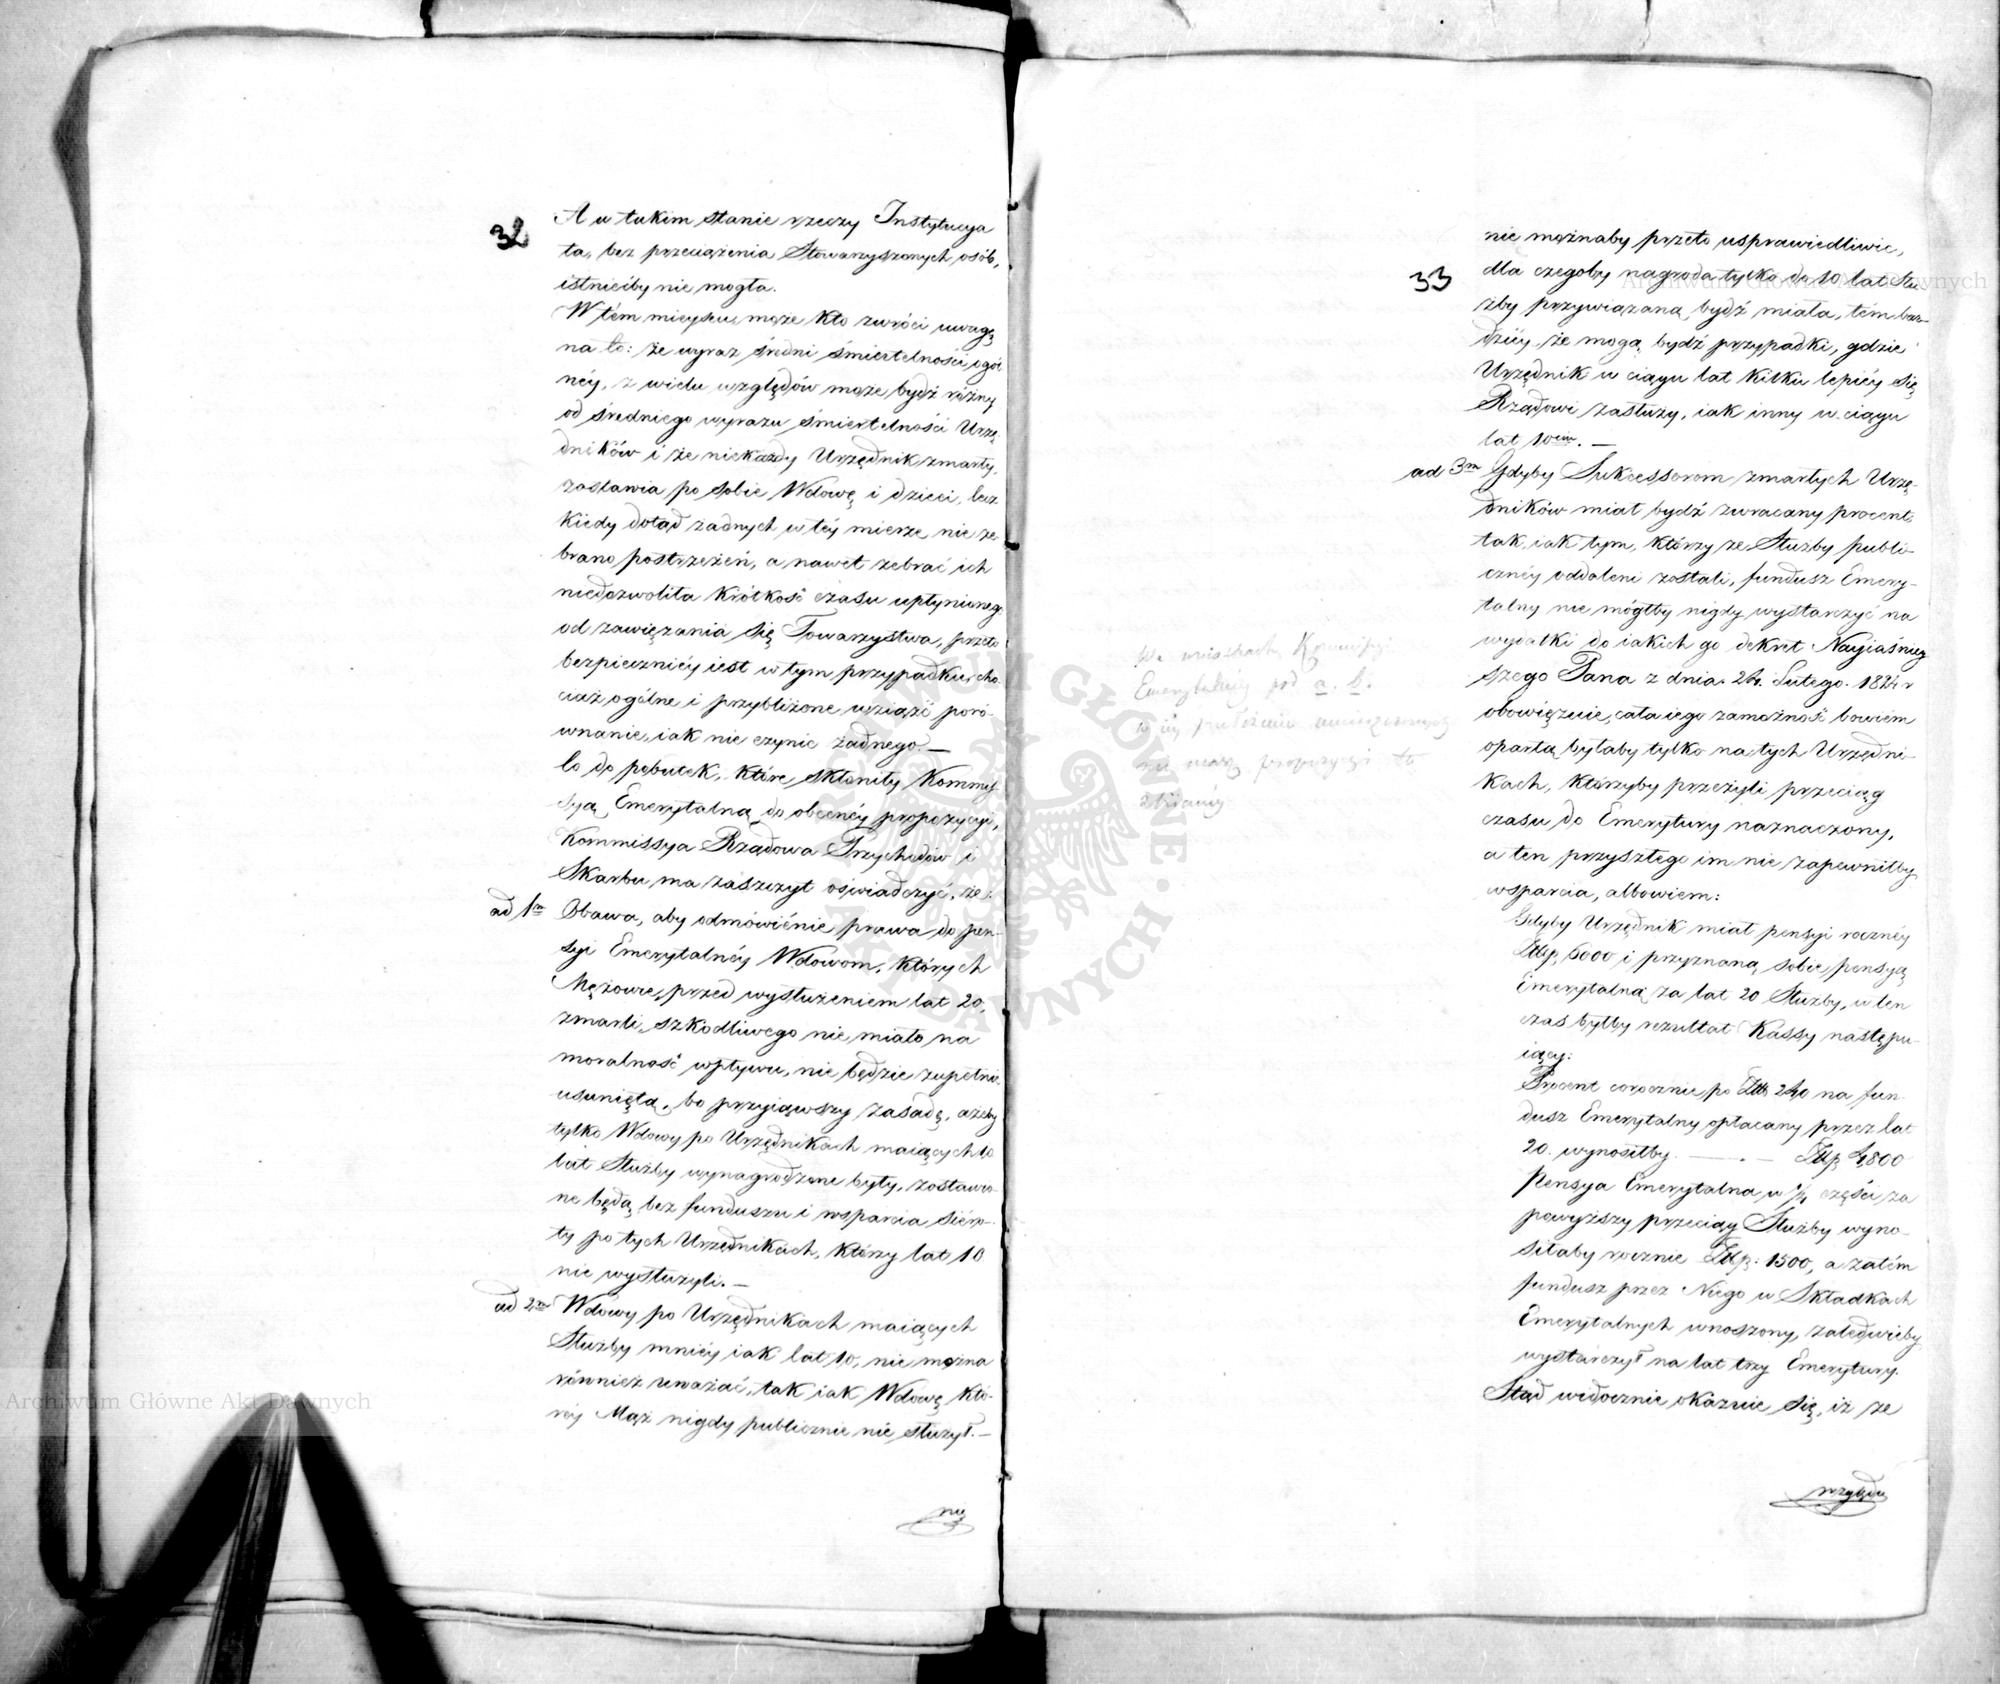 32
A w takim stanie rzeczy Instytucya
ta, bez przeciążenia Stowarzyszonych osób,
istniećby nie mogła.
W tém mieyscu może kto zwróci uwagę
na to: że wyraz średni śmiertelności ogól
néy, z wielu względów może bydź różny
od średniego wyrazu śmiertelności Urzę-
dników i że niekażdy Urzędnik zmarły,
zostawia po sobie Wdowę i dzieci, lecz
kiedy dotąd żadnych w téy mierze nie ze-
brano postrzeżeń, a nawet zebrać ich
niedozwoliła krótkość czasu upłynioneg
od zawiązania się Towarzystwa, przeto
bezpieczniéy iest w tym przypadku cho-
ciaż ogólne i przybliżone wziąść poró-
wnanie, iak nie czynić żadnego. —
Co do pobudek, które skłoniły Kommis
syą Emerytalną do obecnéy propozycyi,
Kommissya Rządowa Przychodów i
Skarbu ma zaszczyt oświadczyć, że:
ad 1m Obawa, aby odmówiénie prawa do pen-
syi Emerytalnéy Wdowom, których
Mężowie, przed wysłużeniem lat 20,
zmarli, szkodliwego nie miało na
moralność wpływu, nie będzie zupełnie
usunięta, bo przyiąwszy zasadę, ażeby
tylko Wdowy po Urzędnikach maiących 10
lat Służby wynagrodzone były, zostawio-
ne będą bez funduszu i wsparcia Siero-
ty po tych Urzędnikach, którzy lat 10
nie wysłużyli. —
ad 2m Wdowy po Urzędnikach maiących
Służby mniéy iak lat 10, nie można
również uważać, tak iak Wdowę, któ-
réy Mąż nigdy publicznie nie służył. —
nie
33
nie możnaby przeto usprawiedliwić,
dla czegoby nagroda tylko do 10 lat Słu
żby przywiązaną bydź miała, tém bar-
dziéy, że mogą bydź przypadki, gdzie
Urzędnik w ciągu lat kilku lepiéy się
Rządowi zasłuży, iak inny w ciągu
lat 10ciu. —
ad 3m Gdyby Sukcessorom zmarłych Urzę-
dników miał bydź zwracany procent,
tak iak tym, którzy ze Służby publi-
cznéy oddaleni zostali, fundusz Emery-
talny nie mógłby nigdy wystarczyć na
wydatki do iakich go dekret Nayiaśniey
szego Pana z dnia 24. Lutego 1824 r
obowięzuie, cała iego zamożność bowiem
opartą byłaby tylko na tych Urzędni-
kach, którzyby przeżyli przeciąg
czasu do Emerytury naznaczony,
a ten przyszłego im nie zapewniłby
wsparcia, albowiem:
Gdyby Urzędnik miał pensyi rocznéy
Złp. 6000 i przyznaną sobie pensyą
Emerytalną za lat 20 Służby, w ten
czas byłby rezultat Kassy następu-
iący:
Procent corocznie po Złp 240 na fun-
dusz Emerytalny opłacany przez lat
20. wynosiłby — . — Złp 4,800
Pensya Emerytalna w 1/4 części za
powyższy przeciąg Służby wyno-
siłaby rocznie Złp: 1500, a zatém
fundusz przez Niego w Składkach
Emerytalnych wnoszony, zaledwieby
wystarczył na lat trzy Emerytury.
Stąd widocznie okazuie się, iż ze
względu
Emerytalnéy pod a. b.
Archiwum Główne Akt Dawnych
Archiwum Główne Akt Dawnych
ARCHIWUM GŁÓWNE AKT DAWNYCH